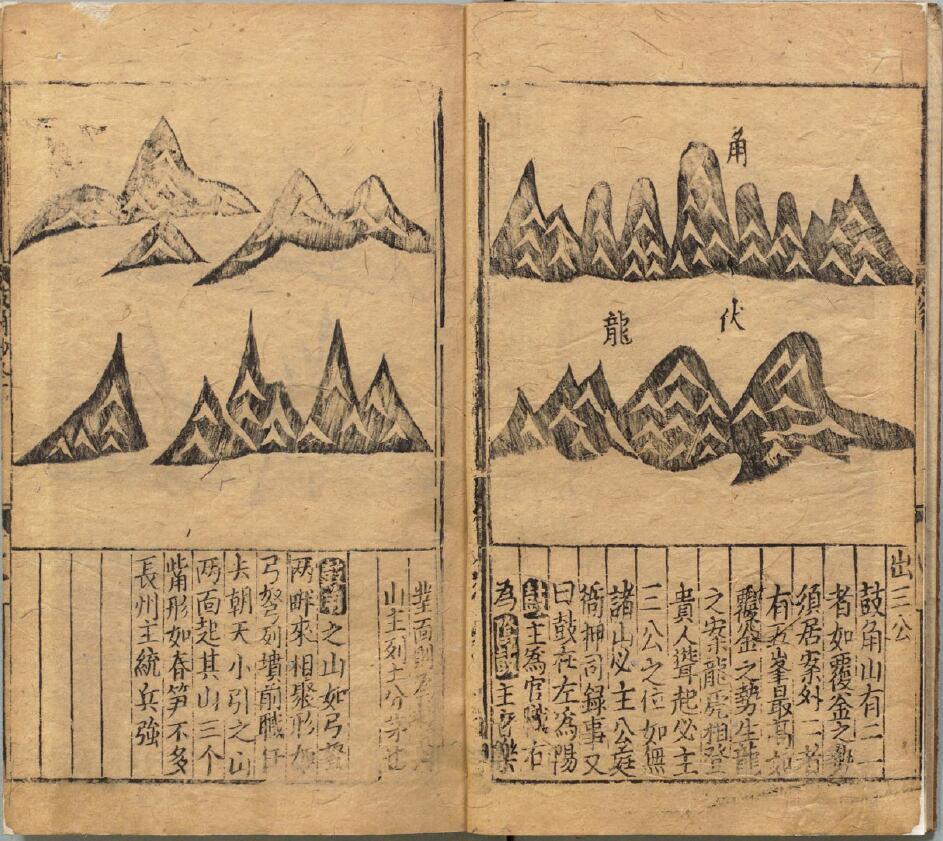 角
伏
龍
出三公
鼓角山有二一
者如覆釜之勢
須居案外二者
有五峯最高如
覆釜之勢生龍
之案龍虎相登
貴人聳起必主
三公之位如無
諸山必主公庭
衙押司録事又
曰鼓在左為陽
主為官職右
為主音樂
山主列土分茅也
之山如弓弩
两畔來相聚形如
弓弩列墳前職任
去朝天小引之山
两面起其山三个
觜形如春笋不多
長州主統兵強